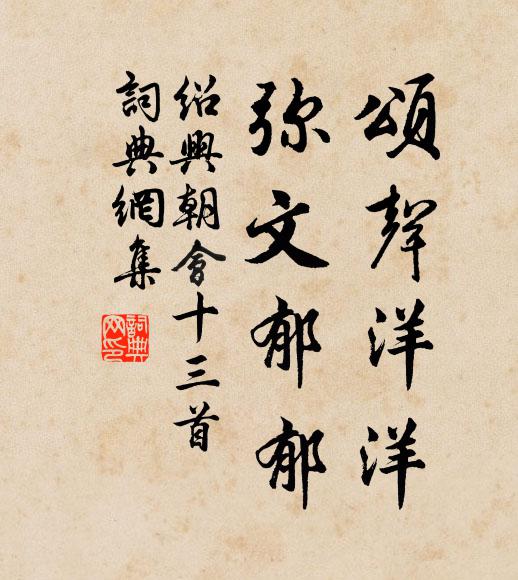 頌聲洋洋
弥文郁郁
紹興朝會十三首
詞典網集
詞典
网印